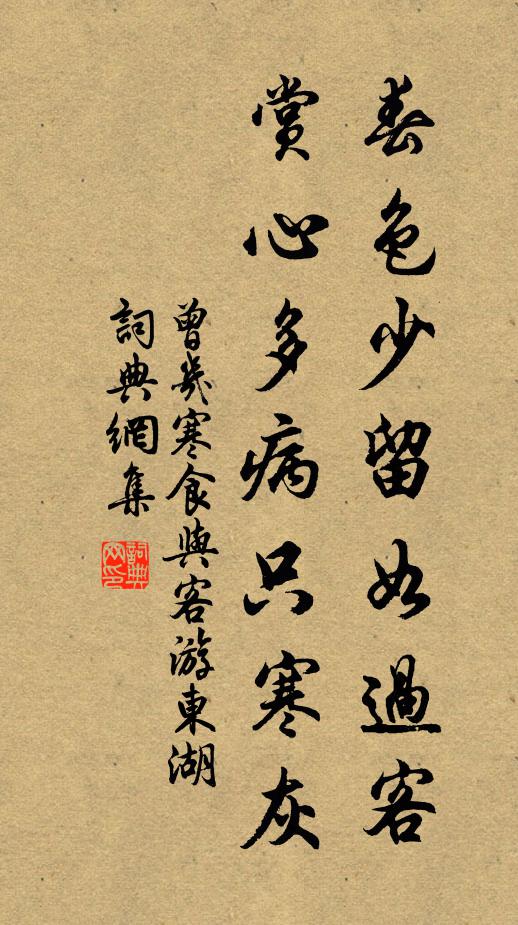 春色少留如過客
賞心多病只寒灰
曾幾寒食與客游東湖
詞典網集
詞典网印